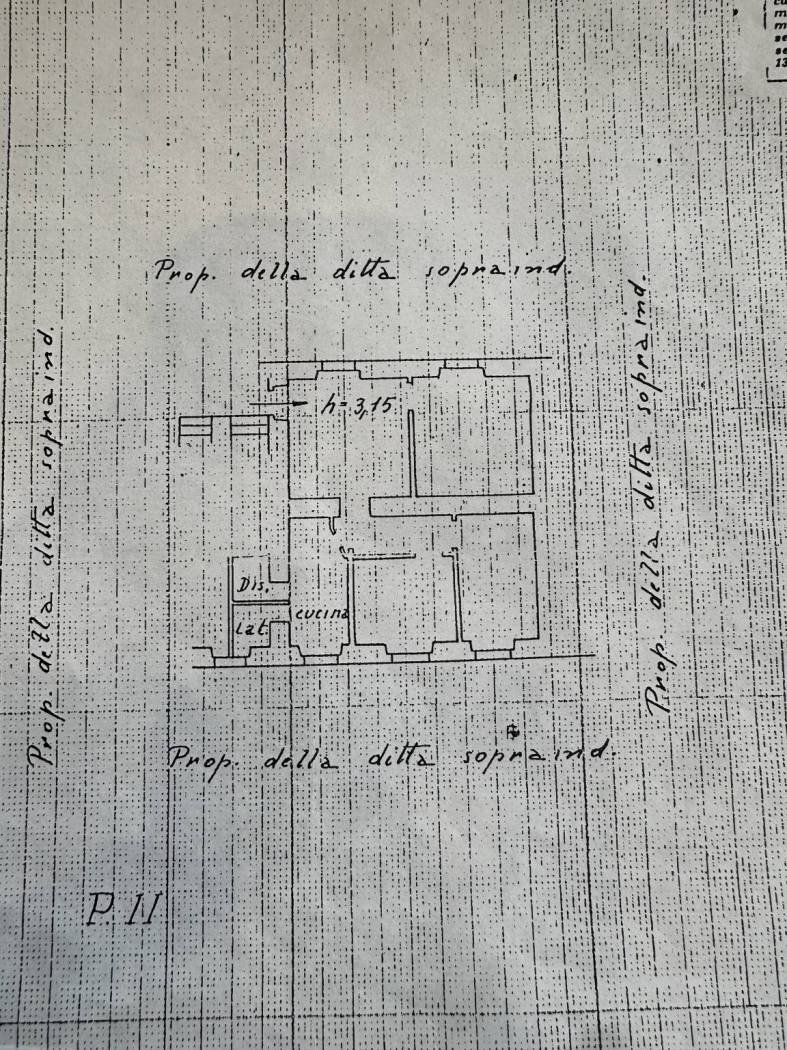 Prop. della ditta sopraind.
Prop. della ditta sopraind.
Prop. della ditta sopraind.
h= 3,15
Dis.
Lat.
cucina
Prop. della ditta sopraind.
P. II